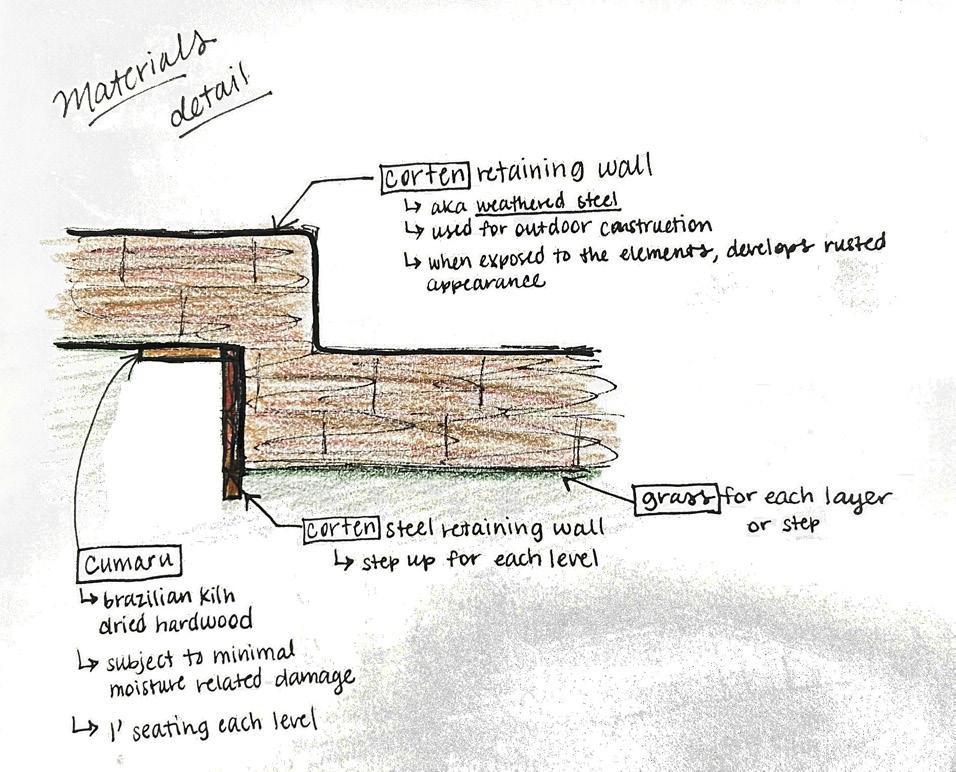 Materials
detail
corten retaining wall
↳ aka weathered steel
↳ used for outdoor construction
↳ when exposed to the elements, develops rusted
appearance
grass for each layer
or step
corten steel retaining wall
↳ step up for each level
cumaru
↳ brazilian kiln
dried hardwood
↳ subject to minimal
moisture related damage
↳ 1' seating each level